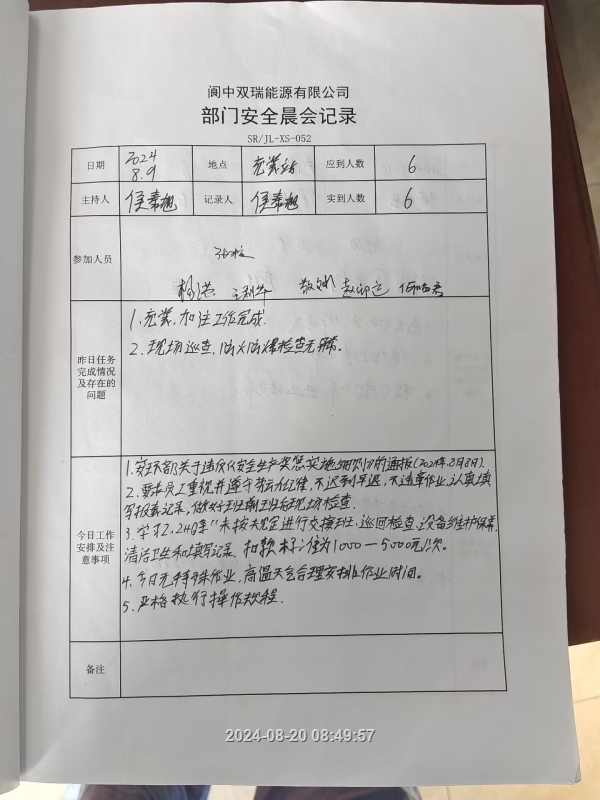 阆中双瑞能源有限公司
部门安全晨会记录
SR/JL-XS-052
日期 2024 8.9 地点 充装站 应到人数 6
主持人 侯素旭 记录人 侯素旭 实到人数 6
参加人员
昨日任务完成情况及存在的问题
1、充装、加注工作完成.
2、现场巡查,防火防爆检查无异常。
今日工作安排及注意事项
1.安环部关于违反《安全生产奖惩实施细则》的通报(2024年8月8日).
2.要求员工重视并遵守劳动纪律,不迟到早退,不违章作业,认真填
写报表记录,做好班前班后现场检查.
3.学习2.24条“未按规定进行交接班、巡回检查、设备维护保养、
清洁卫生和填写记录.扣款标准为1000—5000元/次.
4.今日无特殊作业,高温天气合理安排作业时间。
5.严格执行操作规程.
备注
2024-08-20 08:49:57